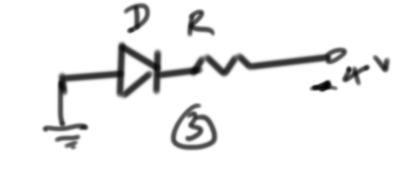 D R
-4V
3